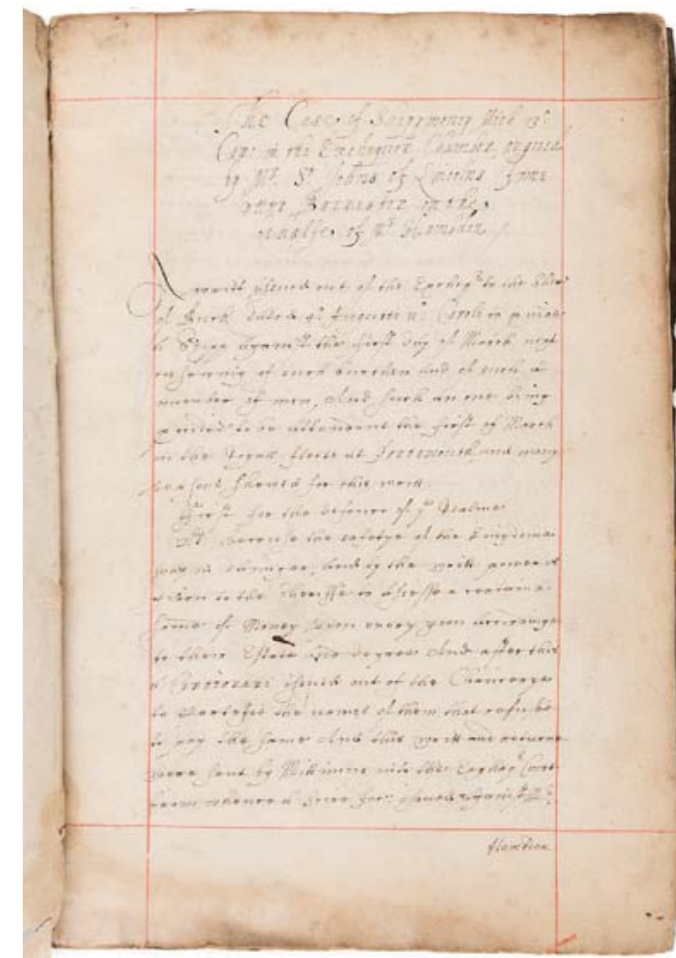 The Case of Shippmoney Mich 13º
Car: in the Exchequer Chamber, argued
by Mr. St Johns of Lincolns Inne
Barrester in the
behalfe of Mr Hamden
A writt issued out of the Excheqr to the
of dated 4º Augusti 11º Caroli to
Shipp against the first day of March next
ensueing of such burthen and of such a
number of men, And such an one being
to be att the first of March
in the Royall fleete at Portsmouth and many
for this writt.
First for the defence of ye Realme
because the safetye of the Kingdome
was in danger, And by the writt power is
given to the Sheriffe to assesse a certaine
some of Money upon every man accordinge
to there Estate And after this
a Certiorari issued out of the Chancerye
to Certefie the names of them that refused
to pay the same And this writt and
were sent by Mittimus into the Excheqr Court
from whence a Scire fac: issued against Mr:
Hamden